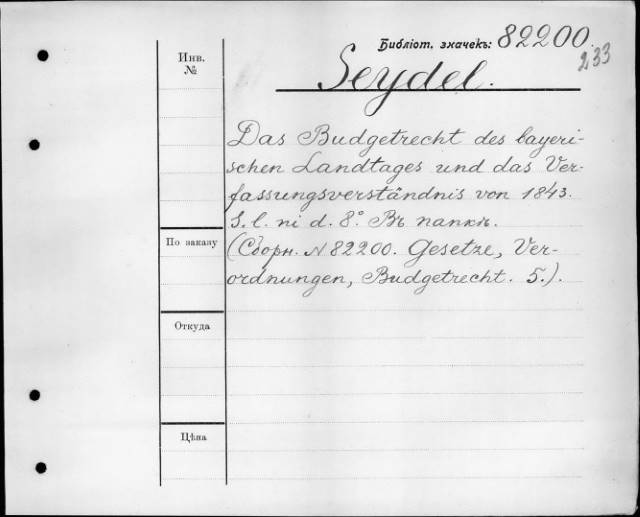 Библіот. значекъ: 82200.
233
Инв.
№
Seydel.
Das Budgetrecht des bayeri-
schen Landtages und das Ver-
fassungsverständnis von 1843.
S. l. ni d. 8° Въ папкѣ.
По заказу
(Сборн. N 82200. Gesetze, Ver-
ordnungen, Budgetrecht. 5.).
Откуда
Цѣна